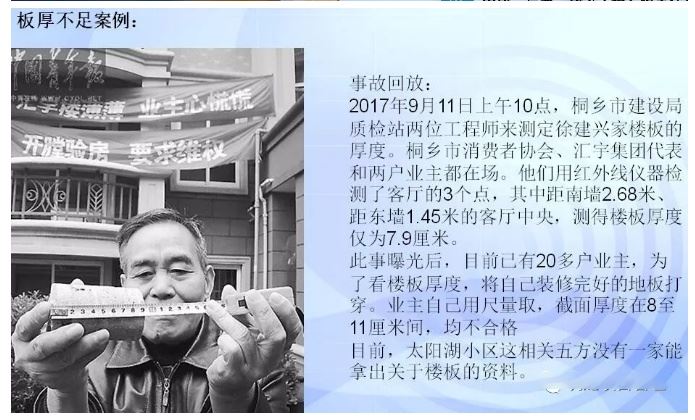 板厚不足案例：
中国青年报
汇宇楼薄薄 业主心慌慌
开膛验房 要求维权
事故回放：
2017年9月11日上午10点，桐乡市建设局
质检站两位工程师来测定徐建兴家楼板的
厚度。桐乡市消费者协会、汇宇集团代表
和两户业主都在场。他们用红外线仪器检
测了客厅的3个点，其中距南墙2.68米、
距东墙1.45米的客厅中央，测得楼板厚度
仅为7.9厘米。
此事曝光后，目前已有20多户业主，为
了看楼板厚度，将自己装修完好的地板打
穿。业主自己用尺量取，截面厚度在8至
11厘米间，均不合格
目前，太阳湖小区这相关五方没有一家能
拿出关于楼板的资料。